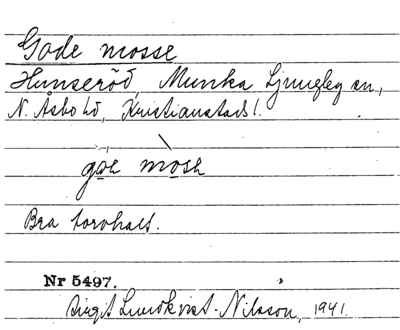 Gode mosse
Hunseröd, Munka Ljungby sn.,
N. Åsbo hd, Kristianstads l.
goe mosse
Bra torvhalt.
Nr 5497.
Birgit Lundkvist-Nilsson, 1941.